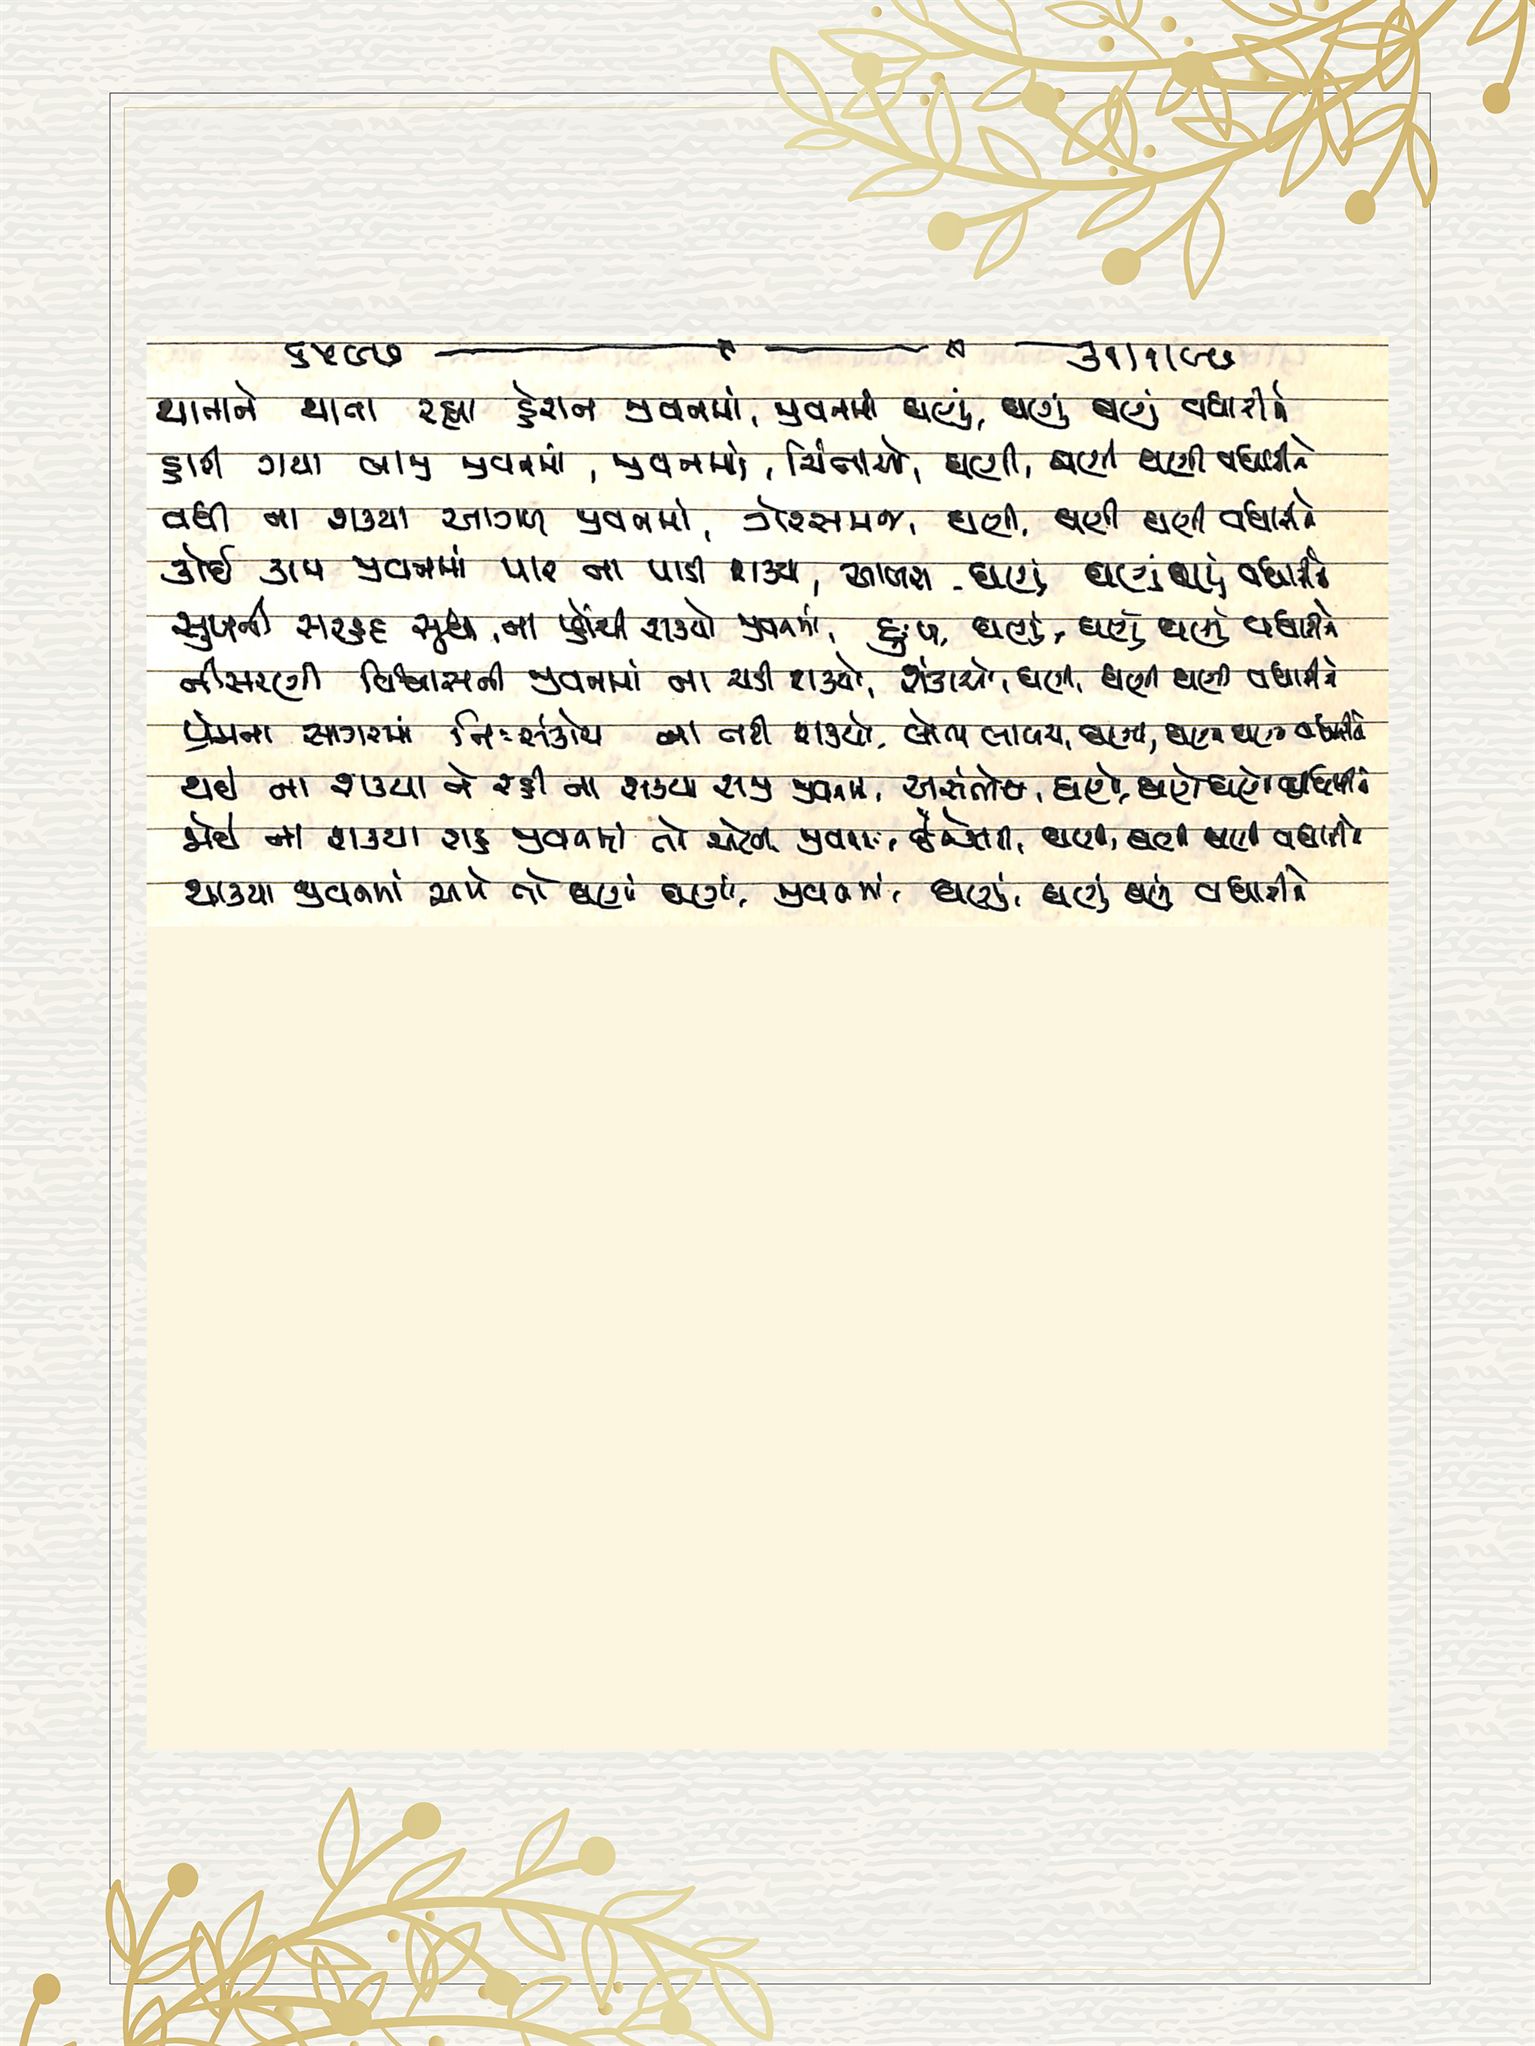 ૬૫૯૭ ૩૧/૧/૯૭
થાતાને થાતા રહ્યા હેરાન જીવનમાં, જીવનમાં ઘણું, ઘણું ઘણું વધારીને
હારી ગયા બાજી જીવનમાં, જીવનમાં, ચિંતાઓ, ઘણી, ઘણી ઘણી વધારીને
વધી ના શક્યા આગળ જીવનમાં, ગેરસમજ, ઘણી, ઘણી ઘણી વધારીને
કોઈ કામ જીવનમાં પાર ના પાડી શક્યા, આળસ ઘણું ઘણું ઘણું વધારીને
સુખની સરહદ સૂધી, ના પ્હોંચી શક્યો જીવનમાં, દુઃખ, ઘણું, ઘણું ઘણું વધારીને
નીસરણી વિશ્વાસની જીવનમાં ના ચડી શક્યો, શંકાઓ, ઘણી, ઘણી ઘણી વધારીને
પ્રેમના સાગરમાં નિઃસંકોચ ના તરી શક્યો, લોભ લાલચ, ઘણા, ઘણા ઘણા વધારીને
થઈ ના શક્યા ને રહી ના શક્યા રાજી જીવનમાં, અસંતોષ, ઘણો, ઘણો ઘણો વધારીને
જોઈ ના શક્યા રાહ જીવનમાં તો જીવનમાં, ઘણી, ઘણી ઘણી વધારીને
થાક્યા જીવનમાં અમે તો ઘણાં ઘણાં, જીવનમાં, ઘણું, ઘણું ઘણું વધારીને